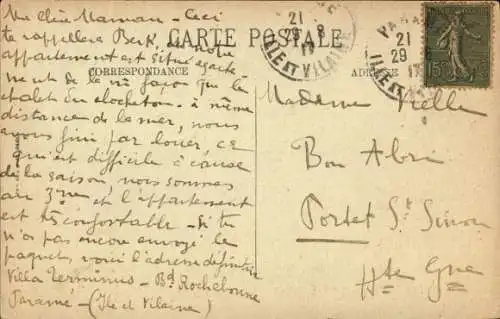 Ma chère Maman - Ceci
te rappellera Berk, car notre
appartement est situé exacte
ment de la mê façon que le
chalet du clocheton - à même
distance de la mer, nous
avons fini par louer, ce
qui est difficile à cause
de la saison, nous sommes
au 3me et l'appartement
est très confortable - Si tu
n'as pas encore envoyé le
paquet, voici l'adresse définitive
Villa Terminus - Bd Rochebonne
Paramé - (Ile et Vilaine)
CARTE POSTALE
CORRESPONDANCE
ADRESSE
21
29 - 8
17
ILLE ET VILAINE
PARAMÉ
21
29
17
ILLE ET
15
Madame Vielle
Bon Abri
Portet St Simon
Hte Gne